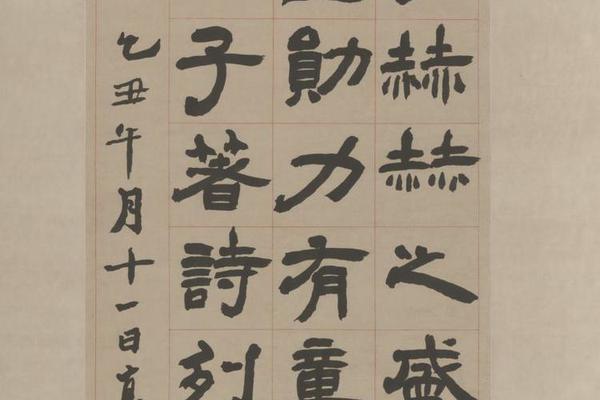 赫赫之盛
勛力有
子著詩列
乙丑午月十一日